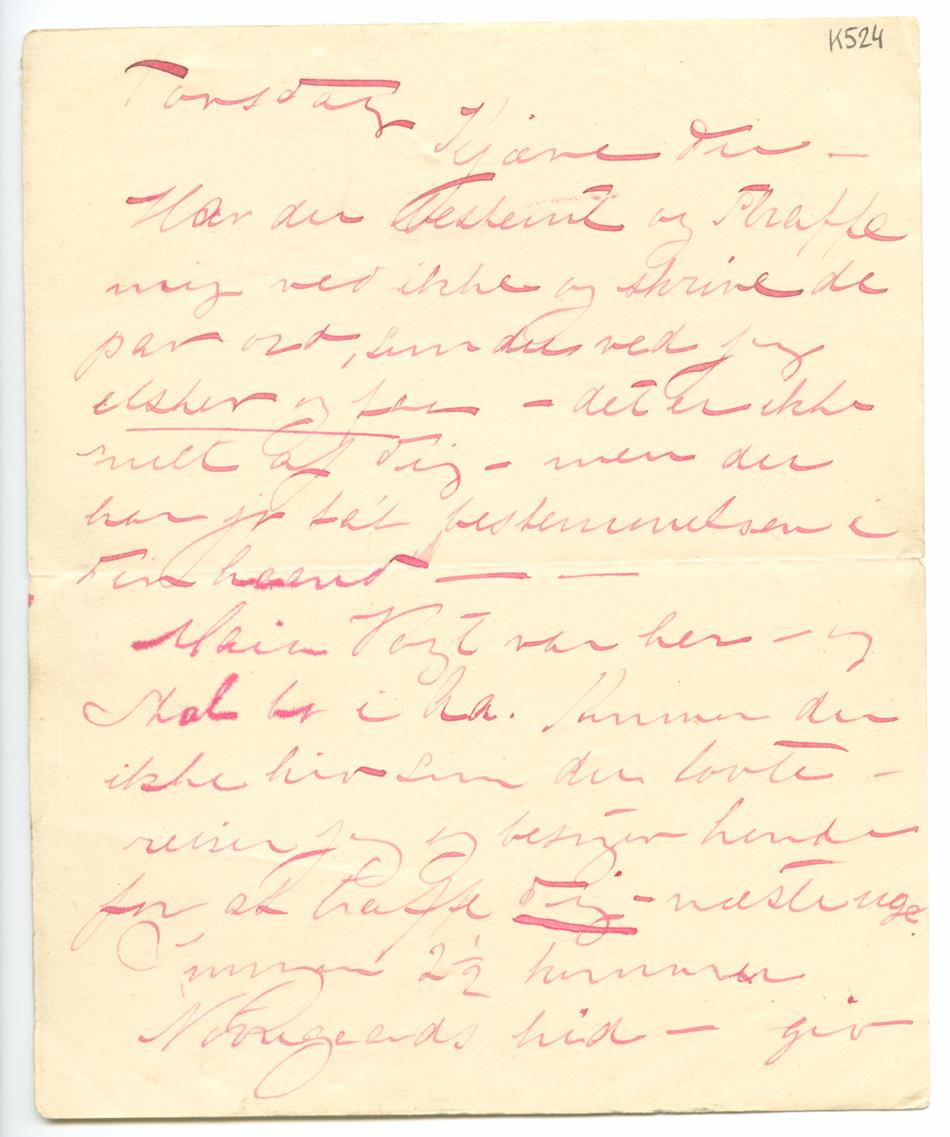 K524
Torsdag
Kjære du –
Har du bestemt og straffe
mig ved ikke og skrive de
par ord, som du ved jeg
elsker og faa – det er ikke
snilt af dig – men du
har jo tat bestemmelsen i
din haand — —
Vogt var her – og
skal bo i Aa. Kommer du
ikke hid som du lovte –
reiser jeg og besøger hende
for at træffe dig – næste uge.
2½ kommer
Nørregaards hid – giv